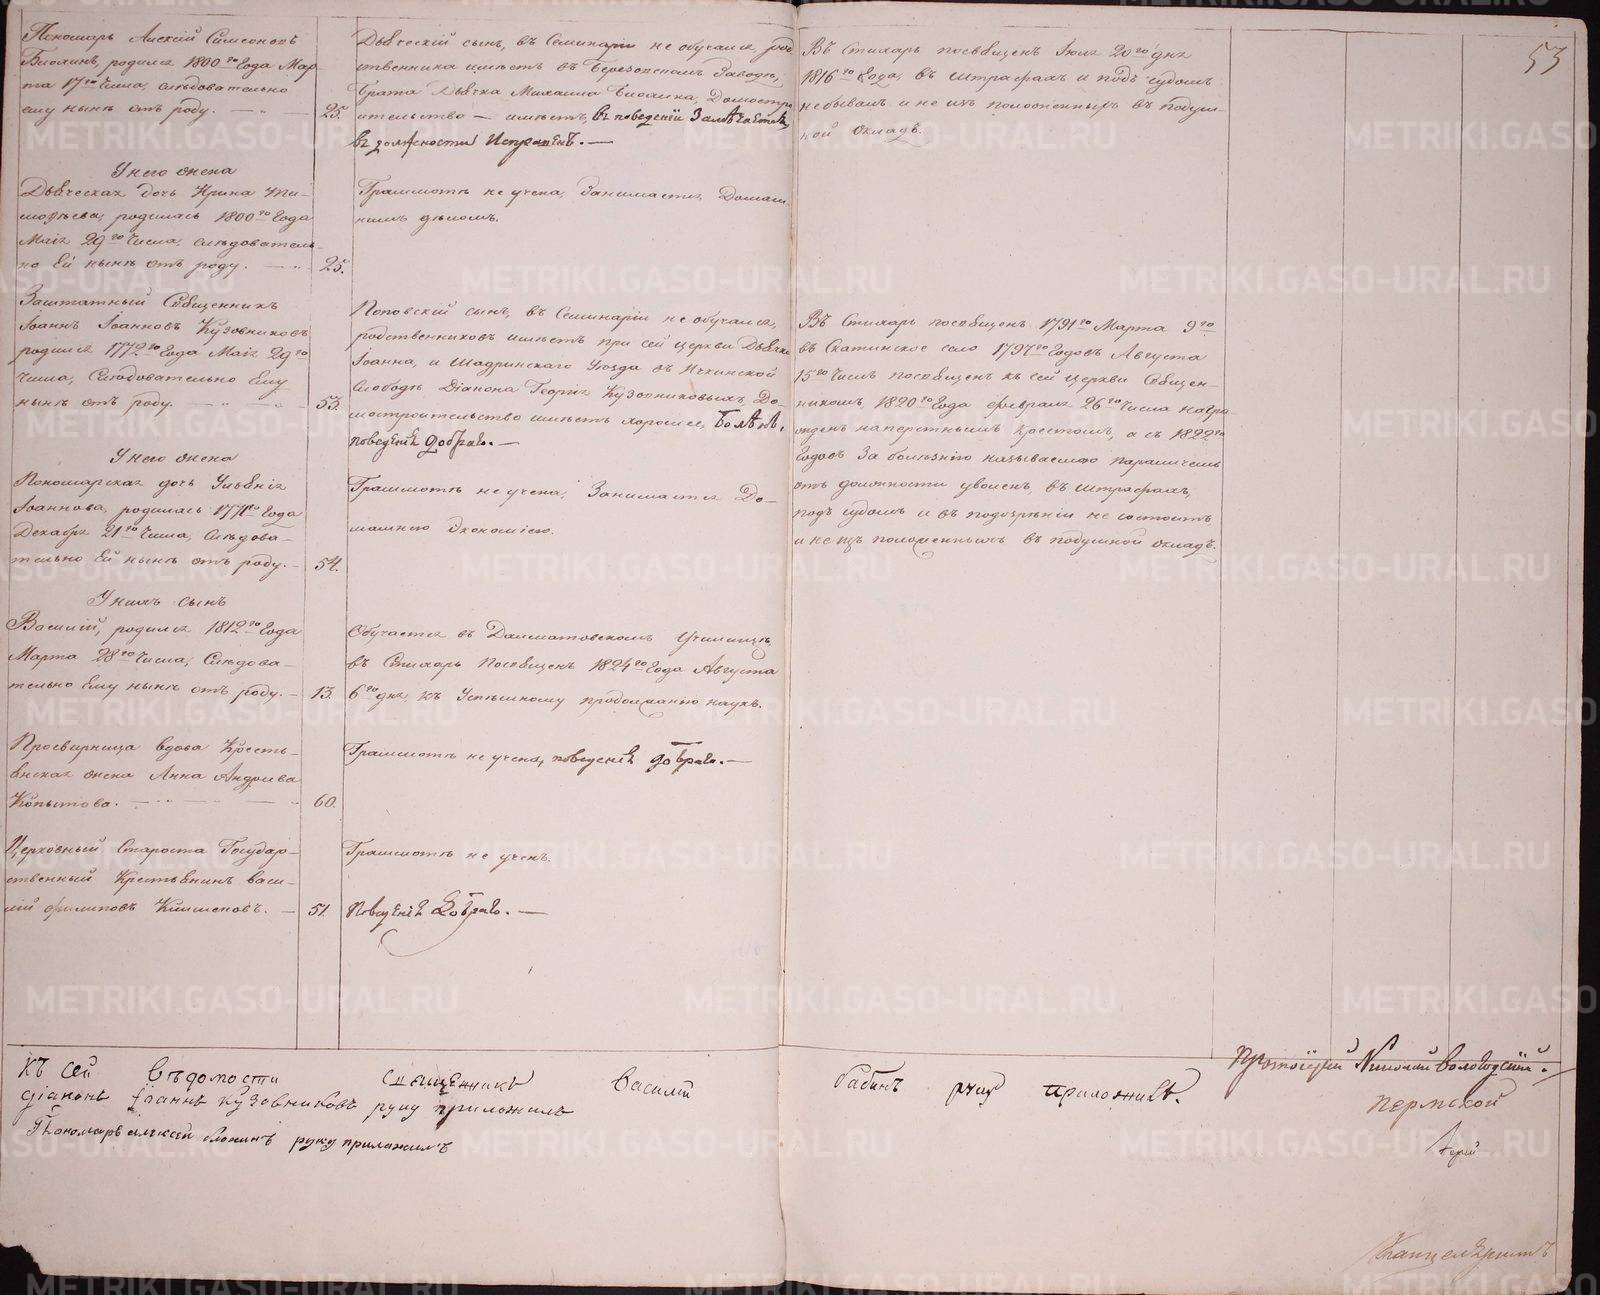 53
Пономарь Алексій Симеоновъ
Блохинъ, родился 1800го Года Мар-
та 17го Числа, слѣдовательно
ему нынѣ отъ роду. 25.
Дьяческій сынъ, въ Семинаріи не обучался, род-
ственника имѣетъ въ Березовскомъ Заводѣ,
брата Дьячка Михаила Блохина, Домостро-
ительство имѣетъ, въ поведеніи
въ должности Исправенъ.
Въ Стихарь посвѣщенъ Іюля 20го дня
1816го Года, въ штрафахъ и подъ судомъ
небывалъ и не изъ положенныхъ въ подуш-
ной окладъ.
У него жена
Дьяческая дочь Ирина Ти-
мофѣева, родилась 1800го Года
Маія 29го Числа, слѣдователь-
но Ей нынѣ отъ роду. 25.
Грамотѣ не учена, Занимается Домаш-
нимъ дѣломъ.
Заштатный Священникъ
Іоаннъ Іоанновъ Кузовниковъ
родился 1772го Года Маія 29го
Числа, Слѣдовательно Ему
нынѣ отъ роду. 53.
Поповскій сынъ, въ Семинаріи не обучался,
родственниковъ имѣетъ при сей церкви Дьячка
Іоанна, и Шадринскаго Уѣзда въ Ичкинской
Слободѣ Діакона Георгія Кузовниковыхъ, До-
мостроительство имѣетъ хорошее,
поведенія добраго.
Въ Стихарь посвѣщенъ 1791го Марта 9го
въ Скатинское село 1797го Годовъ Августа
15го Числъ посвѣщенъ къ сей церкви Священ-
никомъ, 1820го Года февраля 26го Числа награ-
жденъ наперстнымъ крестомъ, а съ 1822го
Годовъ За болѣзнію называемою параличемъ
отъ должности уволенъ, въ штрафахъ,
подъ судомъ и въ подозрѣніи не состоитъ,
и не изъ положенныхъ въ подушной окладъ.
У него жена
Пономарская дочь Ульянія
Іоаннова, родилась 1771го Года
Декабря 21го Числа, Слѣдова-
тельно Ей нынѣ отъ роду. 54.
Грамотѣ не учена, Занимается До-
машнею Экономіею.
У нихъ сынъ
Василій, родился 1812го Года
Марта 28го Числа, Слѣдова-
тельно Ему нынѣ отъ роду. 13.
Обучается въ Далматовскомъ Училищѣ,
въ Стихарь Посвѣщенъ 1824го Года Августа
6го дня, къ Успѣшному продолжанію наукъ.
Просвирница вдова Кресть-
янская жена Анна Андреева
Копытова. 60.
Грамотѣ не учена, поведенія добраго.
Церковный Староста Государ-
ственный Крестьянинъ Васи-
лій Филиповъ 51.
Грамотѣ не ученъ.
Поведенія Добраго.
Къ сей вѣдомости священникъ Василій Бабинъ руку приложилъ.
діаконъ Іоаннъ Кузовниковъ руку приложилъ
Пономарь алексей блохинъ руку приложилъ
Протоіерей Николай Вологодскій.
Пермской
METRIKI.GASO-URAL.RU